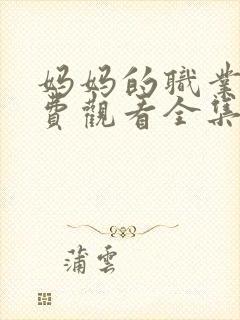 妈妈的職業
費觀看全集
蒲雲